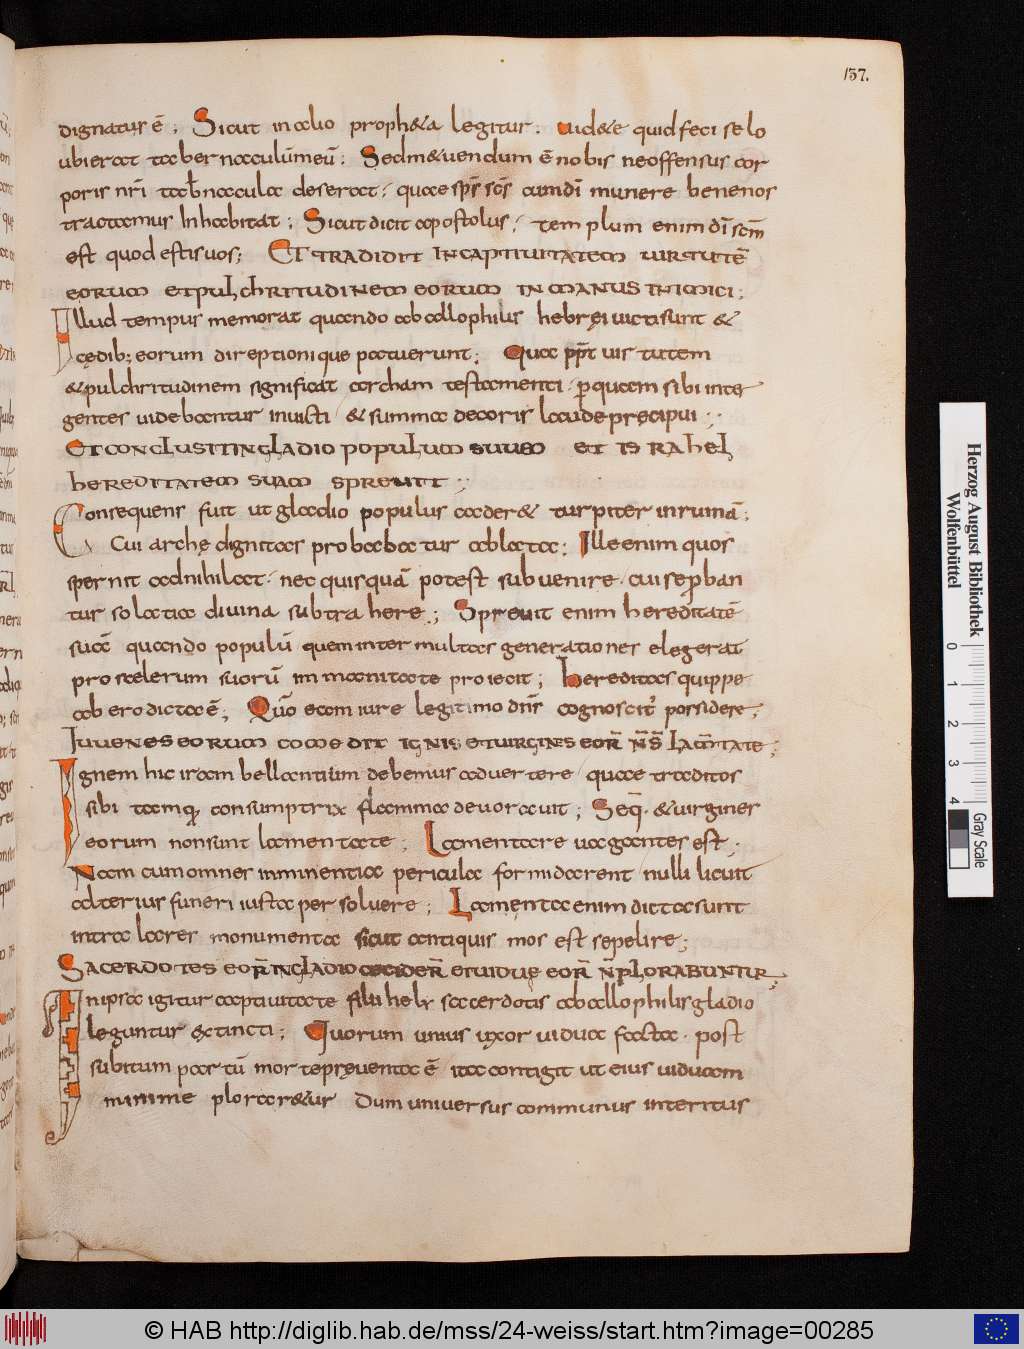 137.
dignatur ē ; Sicut in alio proph&a legitur . uid&e quid feci se lo
ubi erat tabernaculūmeū ; Sed m&uendum ē nobis ne offensus cor
poris nr̄i tab̄naculū deserat , quae sp̄s sc̄s cumdī munere benenos
tractamus Inhabitat ; Sicut dicit apostolus , templum enim dī scm̄
est quod estis uos ; ET TRADIDIT IN CAPTIUITATEM UIRTUTĒ
EORUM ET PULCHRITUDINEM EORUM IN MANUS INIMICI ;
Illud tempus memorat quando ab allophilis hebręi uicti sunt &
cędib; eorum direptionique patuerunt ; Quae pp̄t uirtutem
& pulchritudinem significat archam testamenti . p quam sibi inte
gentes uidebantur inuicti / & summae decoris laude pręcipui ;
ET CONCLUSIT IN GLADIO POPULUM SUUM ET ISRAHEL
HEREDITATEM SUAM SPREUIT ;
Consequens fuit ut gladio populus cader& turpiter inruinā ;
Cui archę dignitas probabatur ablata ; Ille enim quos
spernit adnihilat . nec quisquā potest subuenire . cui sep̄ban
tur solatia diuina subtrahere ; Spreuit enim hereditatē
suā quando populū quem inter multas generationes elegerat
pro scelerum suorū immanitate proiecit ; hereditas quippe
ab ero dicta ē ; Quō eam iure legitimo dn̄s cognoscit possidere ;
IUUENES EORUM COMEDIT IGNIS ET UIRGINES EOR̄ N̄ S̄ LAM̄TATE ;
Ignem hic iram bellantium debemus aduertere quae traditos
sibi tamq̄ consumptrix flamma deuorauit ; Seq̄ . & uirgines
eorum non sunt lamentate ; Lamentare uagantes est ;
Nam cum omnes imminentia pericula formidarent nulli licuit
alterius funeri iusta persoluere ; Lamenta enim dicta sunt
intra lares monumenta sicut antiquis mos est sepelire ;
SACERDOTES EOR̄ IN GLADIO CECIDER̄ ET UIDUE EOR̄ N̄ PLORABUNTUR ;
In ipsa igitur captiuitate filii heli sacerdotis ab allophilis gladio
leguntur extincti ; Quorum unius uxor uidua facta . post
subitum partū morte pręuenta ē ita contigit ut eius uiduam
minime plorar&ur dum uniuersus communis interitus
Herzog August Bibliothek
Wolfenbüttel
0 1 2 3 4
Gray Scale
© HAB http://diglib.hab.de/mss/24-weiss/start.htm?image=00285